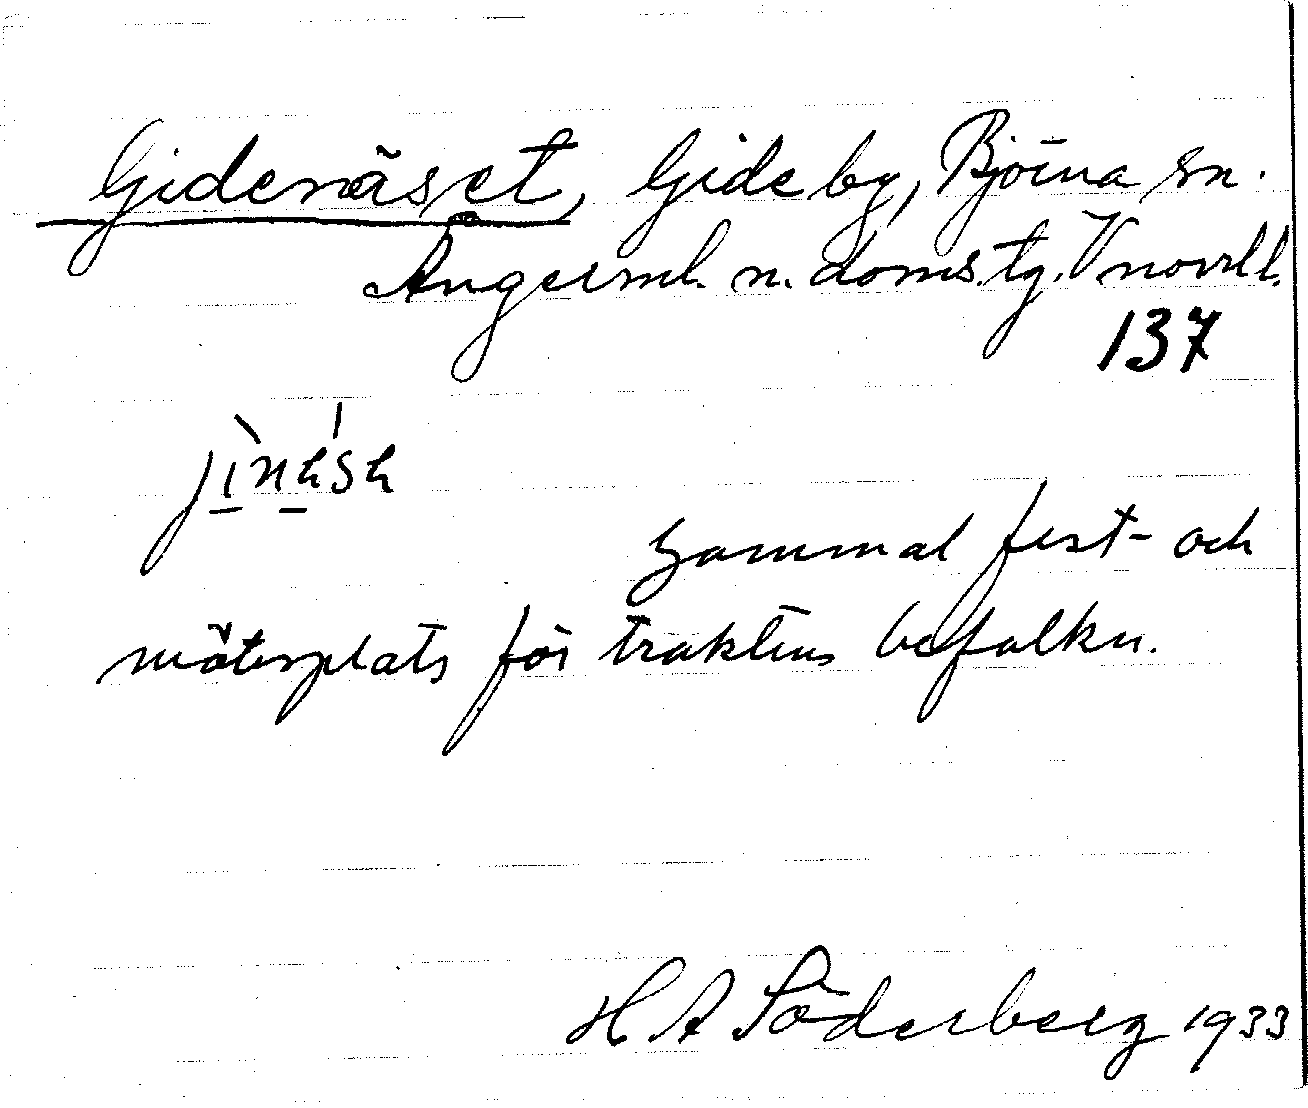 Gidenäset, Gide by, Björna sn.
Ångerml. n. doms. tg. V norrl.
137
Gammal fest- och
mötesplats för traktens befolkn.
H A Söderberg 1933